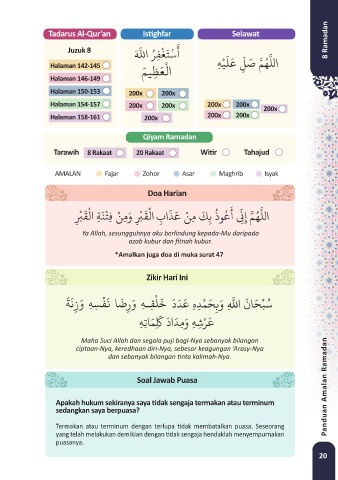 Tadarus Al-Qur'an
Juzuk 8
Halaman 142-145
Halaman 146-149
Halaman 150-153
Halaman 154-157
Halaman 158-161
Istighfar
أَسْتَغْفِرُ اللَّهَ
الْعَظِيمَ
200x 200x
200x 200x
200x
Selawat
اللَّهُمَّ صَلِّ عَلَيْهِ
200x 200x
200x
200x 200x
Qiyam Ramadan
Tarawih 8 Rakaat 20 Rakaat Witir Tahajud
AMALAN Fajar Zohor Asar Maghrib Isyak
Doa Harian
اللَّهُمَّ إِنِّي أَعُوذُ بِكَ مِنْ عَذَابِ الْقَبْرِ وَمِنْ فِتْنَةِ الْقَبْرِ
Ya Allah, sesungguhnya aku berlindung kepada-Mu daripada
azab kubur dan fitnah kubur.
*Amalkan juga doa di muka surat 47
Zikir Hari Ini
سُبْحَانَ اللَّهِ وَبِحَمْدِهِ عَدَدَ خَلْقِهِ وَرِضَا نَفْسِهِ وَزِنَةَ
عَرْشِهِ وَمِدَادَ كَلِمَاتِهِ
Maha Suci Allah dan segala puji bagi-Nya sebanyak bilangan
ciptaan-Nya, keredhaan diri-Nya, sebesar keagungan 'Arasy-Nya
dan sebanyak bilangan tinta kalimah-Nya.
Soal Jawab Puasa
Apakah hukum sekiranya saya tidak sengaja termakan atau terminum
sedangkan saya berpuasa?
Termakan atau terminum dengan terlupa tidak membatalkan puasa. Seseorang
yang telah melakukan demikian dengan tidak sengaja hendaklah menyempurnakan
puasanya.
8 Ramadan
Panduan Amalan Ramadan
20